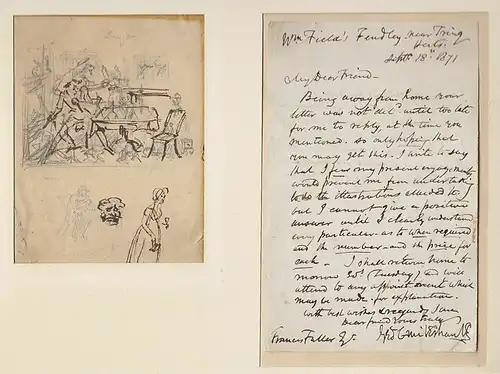 Wm. Field's Fendley near Tring
Herts.
Septr. 18th 1871
My Dear Friend—
Being away from home your
letter was not decd. until too late
for me to reply at the time you
mentioned. so only hoping that
you may get this. I write to say
that I fear my present engagements
would prevent me from undertaking
to do the illustrations alluded to
but I cannot give a positive
answer until I clearly understand
every particular as to when required
and the number—and the price for
each — I shall return home to
morrow (Tuesday) and will
attend to any appointment which
may be made for explanation.
With best wishes & regards I am
Dear friend Yours truly
Francis Fuller Esqr.